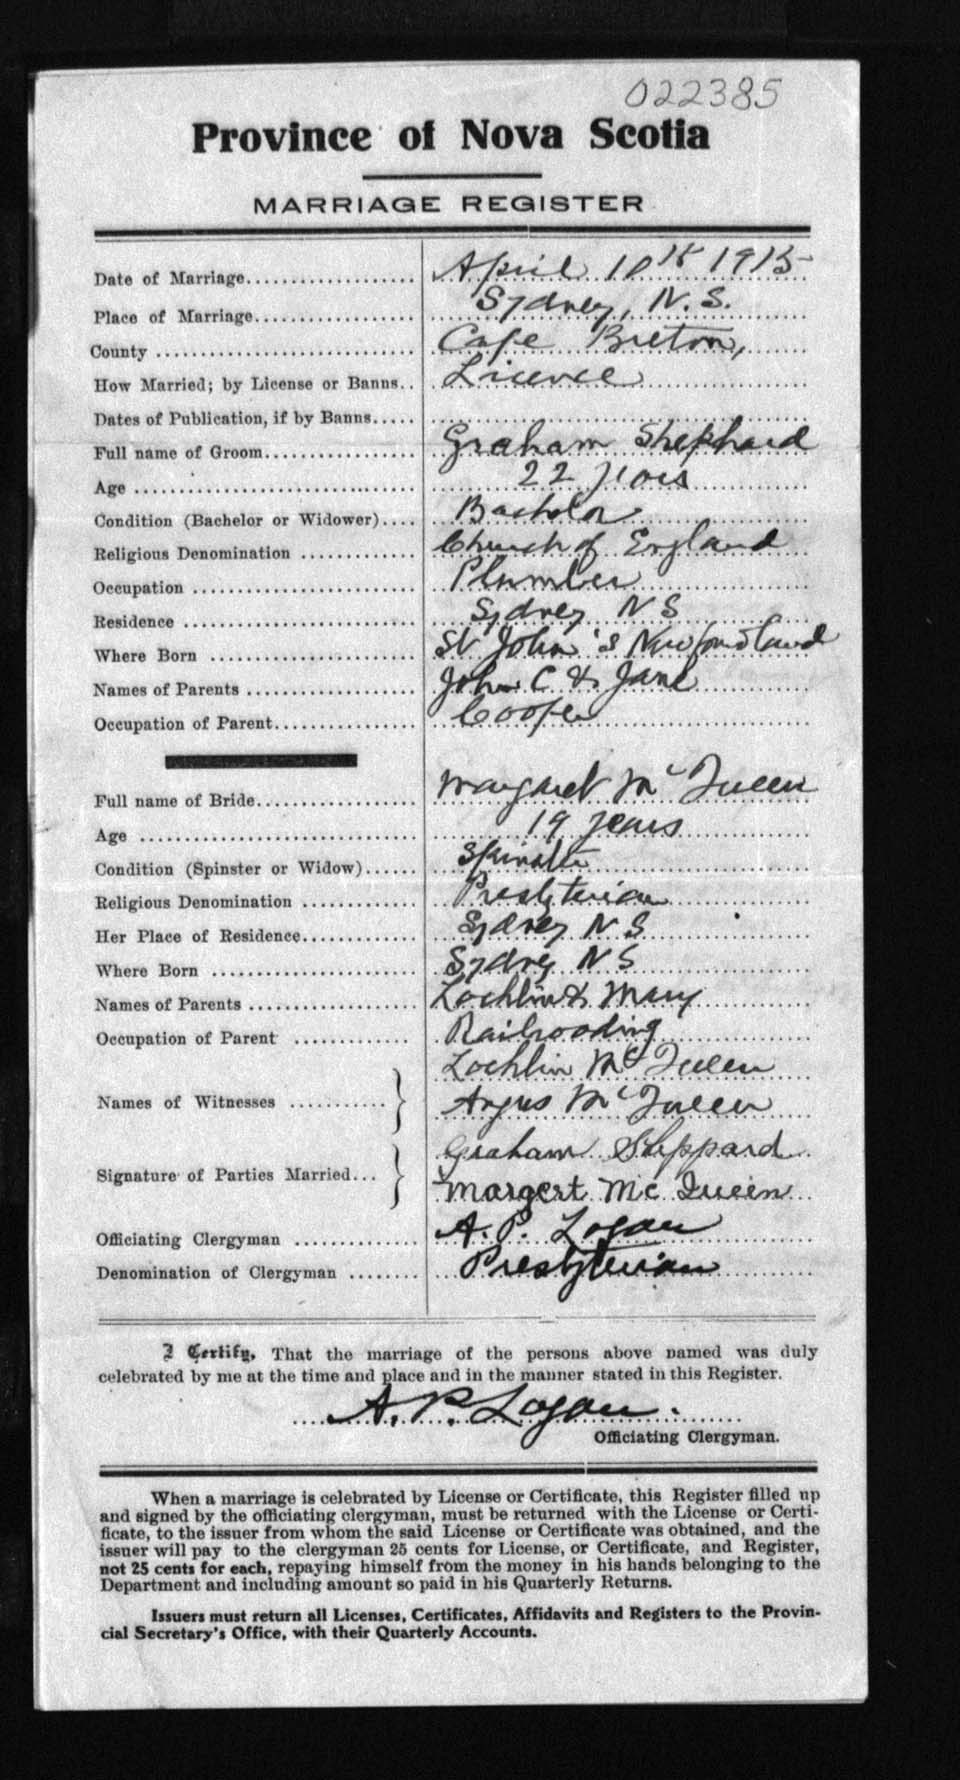 022385
Province of Nova Scotia
MARRIAGE REGISTER
Date of Marriage.................. April 10th 1915
Place of Marriage................. Sydney, N.S.
County ............................ Cape Breton,
How Married; by License or Banns.. Licence
Dates of Publication, if by Banns.....
Full name of Groom................ Graham Shephard
Age ............................... 22 years
Condition (Bachelor or Widower).... Bachelor
Religious Denomination ............ Church of England
Occupation ........................ Plumber
Residence ......................... Sydney N S
Where Born ........................ St John's Newfoundland
Names of Parents .................. John C & Jane
Occupation of Parent............... Cooper
Full name of Bride................. Margaret Mc Queen
Age ............................... 19 years
Condition (Spinster or Widow)...... Spinster
Religious Denomination ............ Presbyterian
Her Place of Residence............. Sydney N S
Where Born ........................ Sydney N S
Names of Parents .................. Lochlin & Mary
Occupation of Parent ............. Railroading
Names of Witnesses ........... Lochlin McQueen
Angus McQueen
Signature of Parties Married... Graham Sheppard
Margert Mc Queen
Officiating Clergyman .............. A. P. Logan
Denomination of Clergyman ........ Presbyterian
I Certify, That the marriage of the persons above named was duly
celebrated by me at the time and place and in the manner stated in this Register.
A. P. Logan.
Officiating Clergyman.
When a marriage is celebrated by License or Certificate, this Register filled up
and signed by the officiating clergyman, must be returned with the License or Certi-
ficate, to the issuer from whom the said License or Certificate was obtained, and the
issuer will pay to the clergyman 25 cents for License, or Certificate, and Register,
not 25 cents for each, repaying himself from the money in his hands belonging to the
Department and including amount so paid in his Quarterly Returns.
Issuers must return all Licenses, Certificates, Affidavits and Registers to the Provin-
cial Secretary's Office, with their Quarterly Accounts.